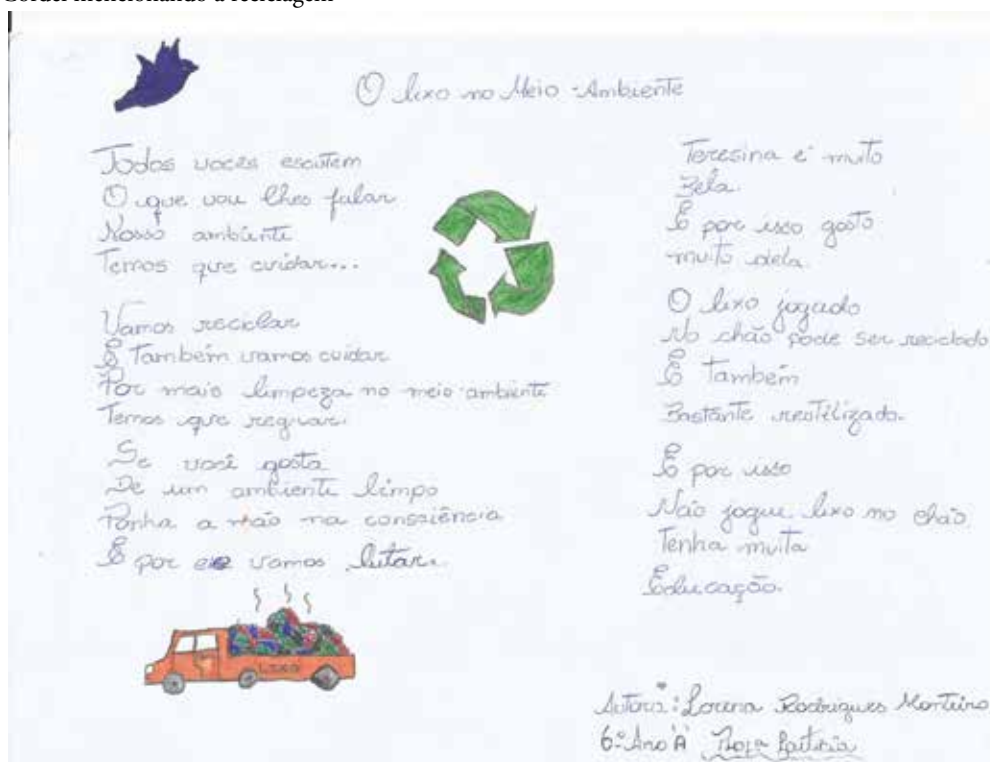 Cordel mencionando a reciclagem
O lixo no Meio-Ambiente
Todos vocês escutem
O que vou lhes falar
Nosso ambiente
Temos que cuidar...
Vamos reciclar
E Também vamos cuidar
Por mais limpeza no meio-ambiente
Temos que
Se você gosta
De um ambiente limpo
Ponha a mão na consciência
E por ele vamos lutar.
LIXO
Teresina é muito
Bela.
E por isso gosto
muito dela.
O lixo jogado
No chão pode ser reciclado
E Também
Bastante reutilizado.
E por isso
Não jogue lixo no chão
Tenha muita
Educação.
Autora: Lorena Rodrigues Monteiro
6º Ano "A"